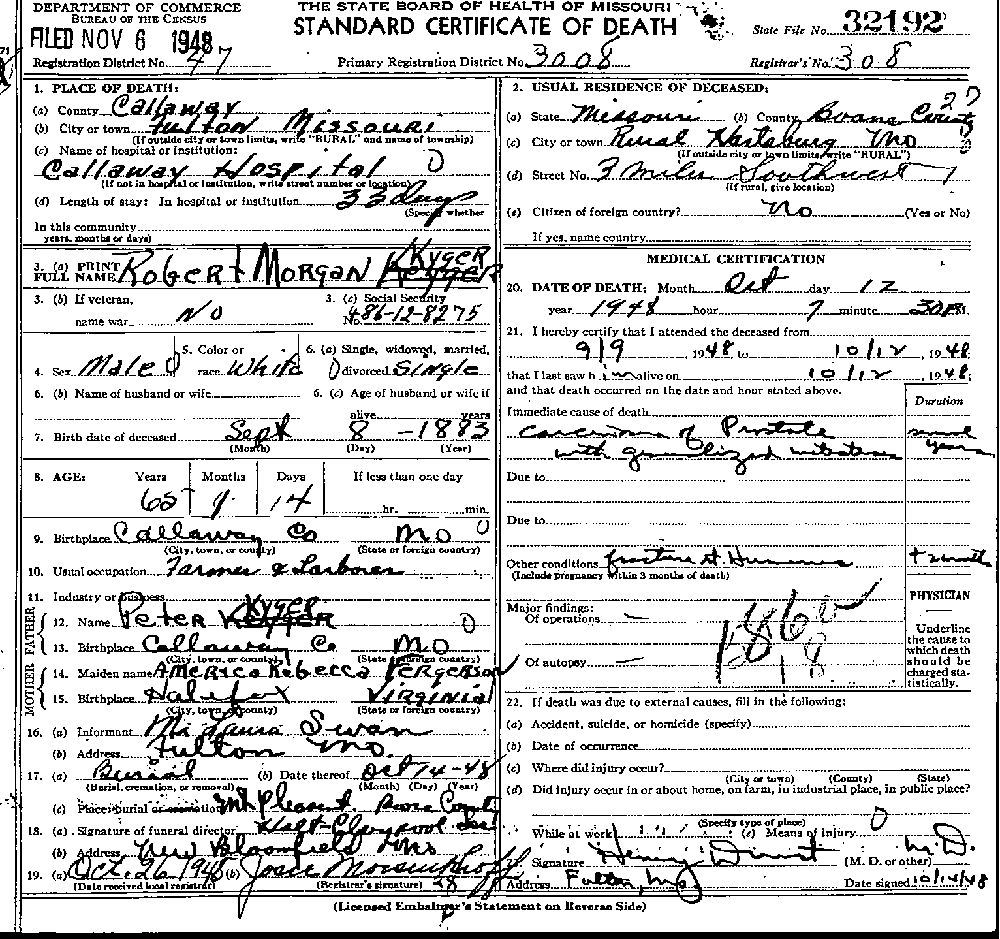 DEPARTMENT OF COMMERCE
BUREAU OF THE CENSUS
THE STATE BOARD OF HEALTH OF MISSOURI
STANDARD CERTIFICATE OF DEATH
State File No. 32192
FILED NOV 6 1948
Registration District No. 47
Primary Registration District No. 3008
Registrar's No. 308
1. PLACE OF DEATH:
(a) County Callaway
(b) City or town Fulton Missouri
(If outside city or town limits, write "RURAL" and name of township)
(c) Name of hospital or institution:
Callaway Hospital 0
(If not in hospital or institution, write street number or location)
(d) Length of stay: In hospital or institution 33 days
(Specify whether
In this community
years, months or days)
3. (a) PRINT FULL NAME Robert Morgan Kyger
3. (b) If veteran, name war No
3. (c) Social Security No. 486-12-8275
4. Sex Male
5. Color or race White
6. (a) Single, widowed, married, divorced Single
6. (b) Name of husband or wife
6. (c) Age of husband or wife if alive years
7. Birth date of deceased Sept 8 - 1883
(Month) (Day) (Year)
8. AGE: Years Months Days If less than one day
65 1 14 hr. min.
9. Birthplace Callaway Co Mo 0
(City, town, or county) (State or foreign country)
10. Usual occupation Farmer & Larborer
11. Industry or business
FATHER
12. Name Peter Kyger 0
13. Birthplace Callaway Co Mo
(City, town, or county) (State or foreign country)
MOTHER
14. Maiden name America Rebecca Fergerson
15. Birthplace Halifax Virginia
(City, town, or county) (State or foreign country)
16. (a) Informant Laura Swan
(b) Address Fulton Mo.
17. (a) Burial (b) Date thereof Oct 14-48
(Burial, cremation, or removal) (Month) (Day) (Year)
(c) Place: burial or cremation Mt Pleasant. Boone County
18. (a) Signature of funeral director Holt-Claypool
(b) Address New Bloomfield Mo
19. (a) Oct. 26 1948 (b) Josie
(Date received local registrar) (Registrar's signature)
2. USUAL RESIDENCE OF DECEASED:
(a) State Missouri (b) County Boone County
(c) City or town Rural Hartsburg Mo
(If outside city or town limits, write "RURAL")
(d) Street No. 3 Miles Southwest
(If rural, give location)
(e) Citizen of foreign country? No (Yes or No)
If yes, name country
MEDICAL CERTIFICATION
20. DATE OF DEATH: Month Oct day 12
year 1948 hour 7 minute 30 P.M.
21. I hereby certify that I attended the deceased from
9/9, 1948 to 10/12, 1948;
that I last saw him alive on 10/12, 1948;
and that death occurred on the date and hour stated above.
Duration
Immediate cause of death
carcinoma of Prostate
with generalized
years
Due to
Due to
Other conditions fracture Humerus
(Include pregnancy within 3 months of death)
Major findings:
Of operations —
Of autopsy —
PHYSICIAN
Underline the cause to which death should be charged statistically.
22. If death was due to external causes, fill in the following:
(a) Accident, suicide, or homicide (specify)
(b) Date of occurrence
(c) Where did injury occur?
(City or town) (County) (State)
(d) Did injury occur in or about home, on farm, in industrial place, in public place?
(Specify type of place)
While at work (e) Means of injury 0
23. Signature Henry (M. D. or other) M.D.
Address Fulton, Mo Date signed 10/14/48
(Licensed Embalmer's Statement on Reverse Side)